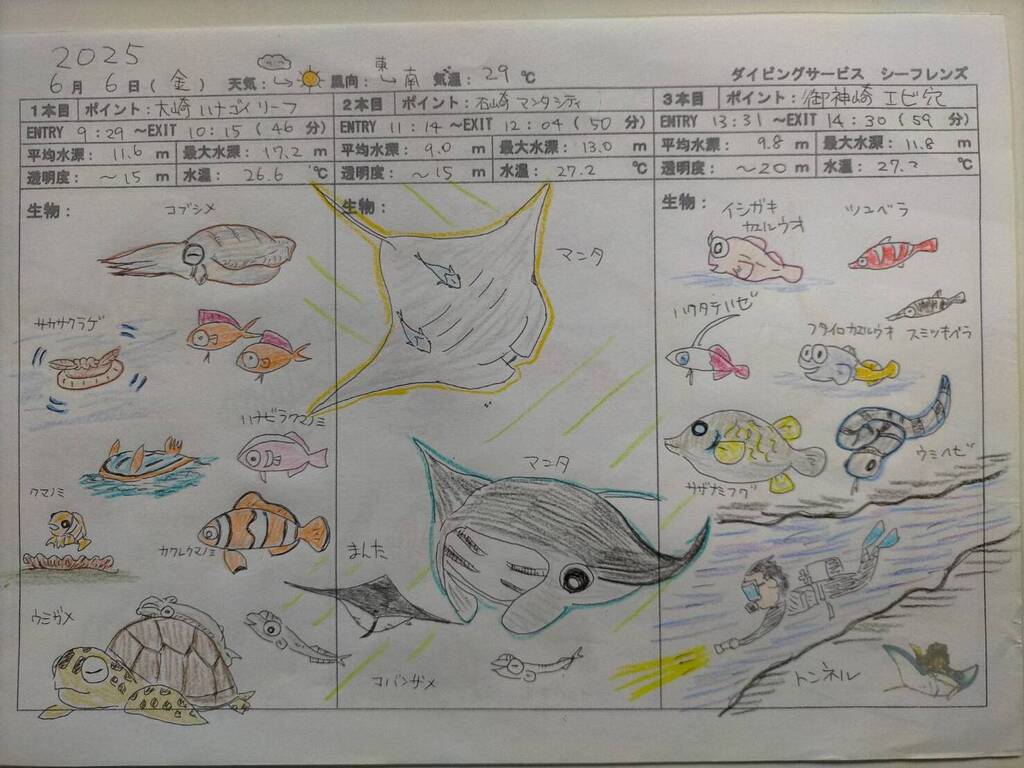 2025
6月 6日(金) 天気: 風向: 東 南 気温: 29 ℃ ダイビングサービス シーフレンズ
1本目 ポイント: 大崎 ハナゴイリーフ
ENTRY 9:29 ~EXIT 10:15 (46 分)
平均水深: 11.6 m 最大水深: 17.2 m
透明度: ~15 m 水温: 26.6 ℃
生物:
コブシメ
サカサクラゲ
ハナビラクマノミ
クマノミ
カクレクマノミ
ウミガメ
2本目 ポイント: 石崎 マンタシティ
ENTRY 11:14 ~EXIT 12:04 (50 分)
平均水深: 9.0 m 最大水深: 13.0 m
透明度: ~15 m 水温: 27.2 ℃
生物:
マンタ
マンタ
まんた
コバンザメ
3本目 ポイント: 御神崎 エビ穴
ENTRY 13:31 ~EXIT 14:30 (59 分)
平均水深: 9.8 m 最大水深: 11.8 m
透明度: ~20 m 水温: 27.2 ℃
生物:
イシガキ
カエルウオ
ツユベラ
ハタタテハゼ
フタイロカエルウオ
スミツキベラ
サザナミフグ
ウミヘビ
トンネル